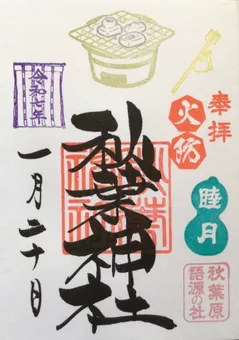 奉拝
火防
睦月
秋葉原
語源の社
秋葉神社
令和七年
一月二十日